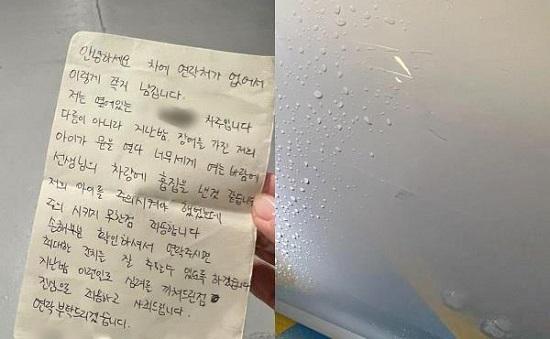 안녕하세요 차에 연락처가 없어서
이렇게 쪽지 남깁니다.
저는 옆에있는 차주입니다
다름이 아니라 지난밤, 장애를 가진 저희
아이가 문을 열다 너무세게 여는 바람에
선생님의 차량에 흠집을 낸것 같습니다
저의 아이를 주의시켜야 했었는데
주의 시키지 못한점 죄송합니다
손해부분 확인하셔서 연락주시면
최대한 조치를 잘 취할수 있도록 하겠습니다
지난밤 이런일로 심려를 끼쳐드린점
진심으로 죄송하고 사죄드립니다.
연락부탁드리겠습니다.